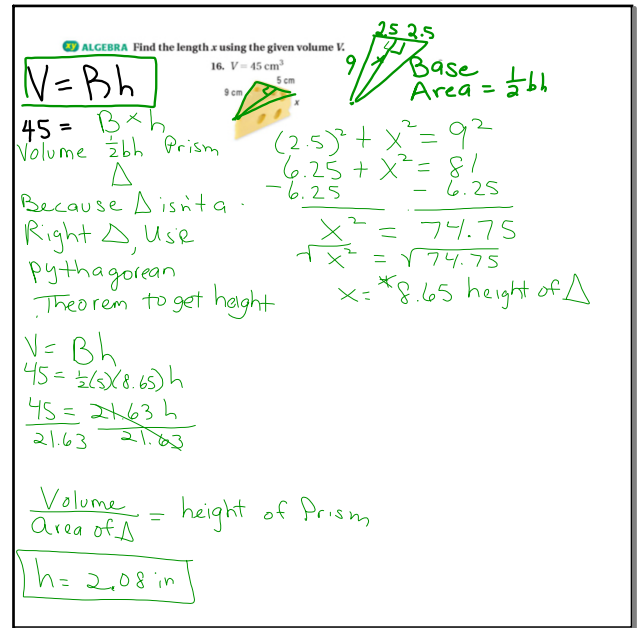 2.5 2.5
xy ALGEBRA Find the length x using the given volume V.
16. V = 45 cm³
5 cm
9 cm
x
V = Bh
9
x
Base
Area = 1/2 bh
45 = B × h
Volume 1/2bh Prism
Δ
Because Δ isn't a
Right Δ, Use
pythagorean
Theorem to get height
(2.5)² + x² = 9²
6.25 + x² = 81
-6.25 - 6.25
x² = 74.75
√x² = √74.75
x = *8.65 height of Δ
V = Bh
45 = 1/2(5)(8.65)h
45 = 21.63 h
21.63 21.63
Volume
Area of Δ
= height of Prism
h = 2.08 in